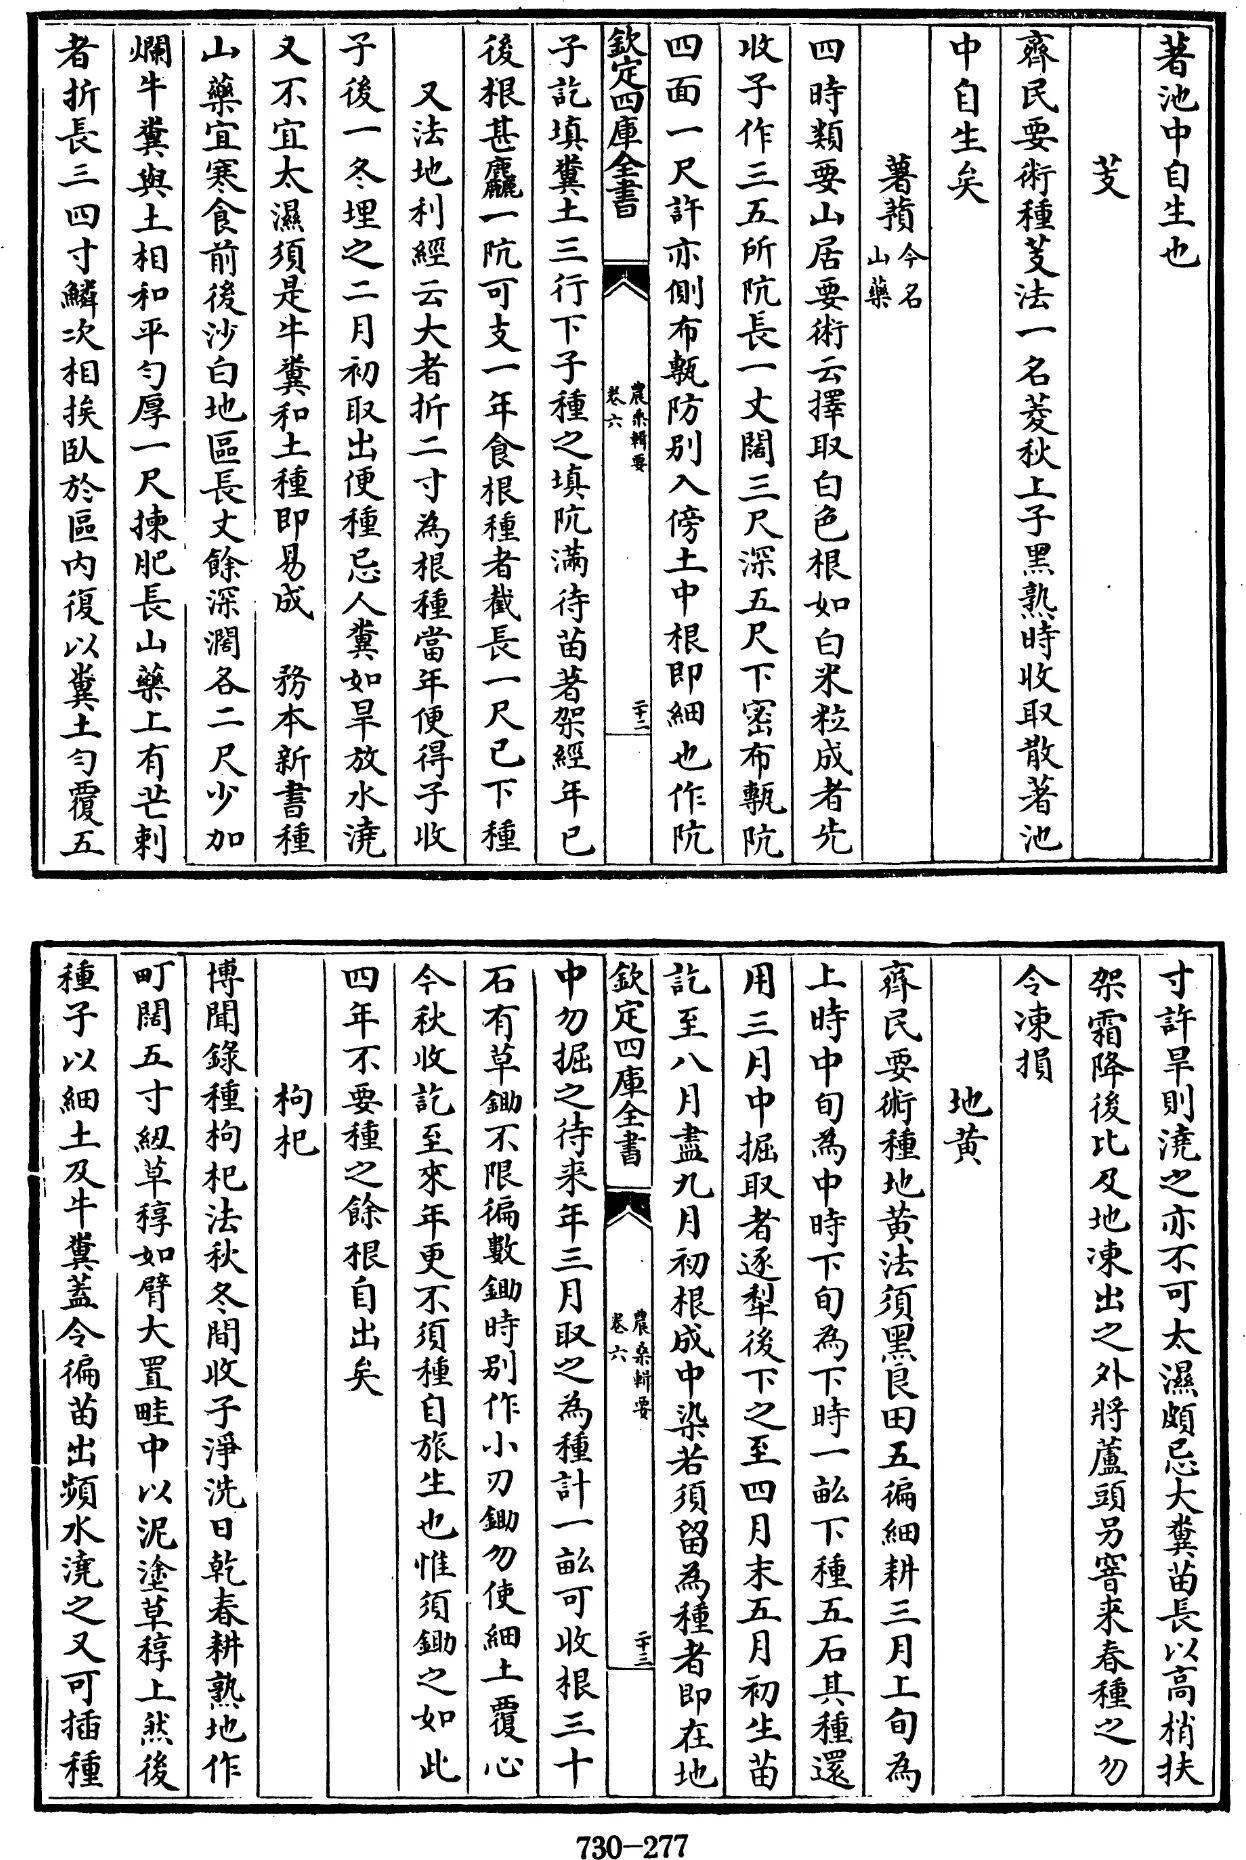 著池中自生也
芰
齊民要術種芰法一名菱秋上子黑熟時收取散著池
中自生矣
薯蕷今名山藥
四時類要山居要術云擇取白色根如白米粒成者先
收子作三五所阬長一丈闊三尺深五尺下密布甎阬
四面一尺許亦側布甎防别入傍土中根即細也作阬
欽定四庫全書
農桑輯要
卷六
二十二
子訖填糞土三行下子種之填阬滿待苗著架經年已
後根甚麤一阬可支一年食根種者截長一尺已下種
又法地利經云大者折二寸為根種當年便得子收
子後一冬埋之二月初取出便種忌人糞如旱放水澆
又不宜太濕須是牛糞和土種即易成　務本新書種
山藥宜寒食前後沙白地區長丈餘深濶各二尺少加
爛牛糞與土相和平勻厚一尺揀肥長山藥上有芒刺
者折長三四寸鱗次相挨臥於區内復以糞土勻覆五
寸許旱則澆之亦不可太濕頗忌大糞苗長以高梢扶
架霜降後比及地凍出之外將蘆頭另窖來春種之勿
令凍損
地黄
齊民要術種地黄法須黑良田五徧細耕三月上旬為
上時中旬為中時下旬為下時一畝下種五石其種還
用三月中掘取者逐犁後下之至四月末五月初生苗
訖至八月盡九月初根成中染若須留為種者即在地
欽定四庫全書
農桑輯要
卷六
二十三
中勿掘之待来年三月取之為種計一畝可收根三十
石有草鋤不限徧數鋤時别作小刃鋤勿使細土覆心
今秋收訖至來年更不須種自旅生也惟須鋤之如此
四年不要種之餘根自出矣
枸杞
博聞錄種枸杞法秋冬間收子淨洗日乾春耕熟地作
町闊五寸紐草稕如臂大置畦中以泥塗草稕上然後
種子以細土及牛糞蓋令徧苗出頻水澆之又可插種
730-277